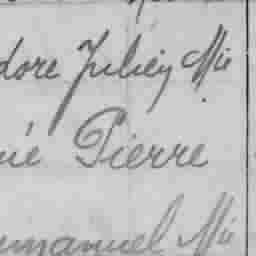 dore Julien Mie
ué Pierre
manuel Mie